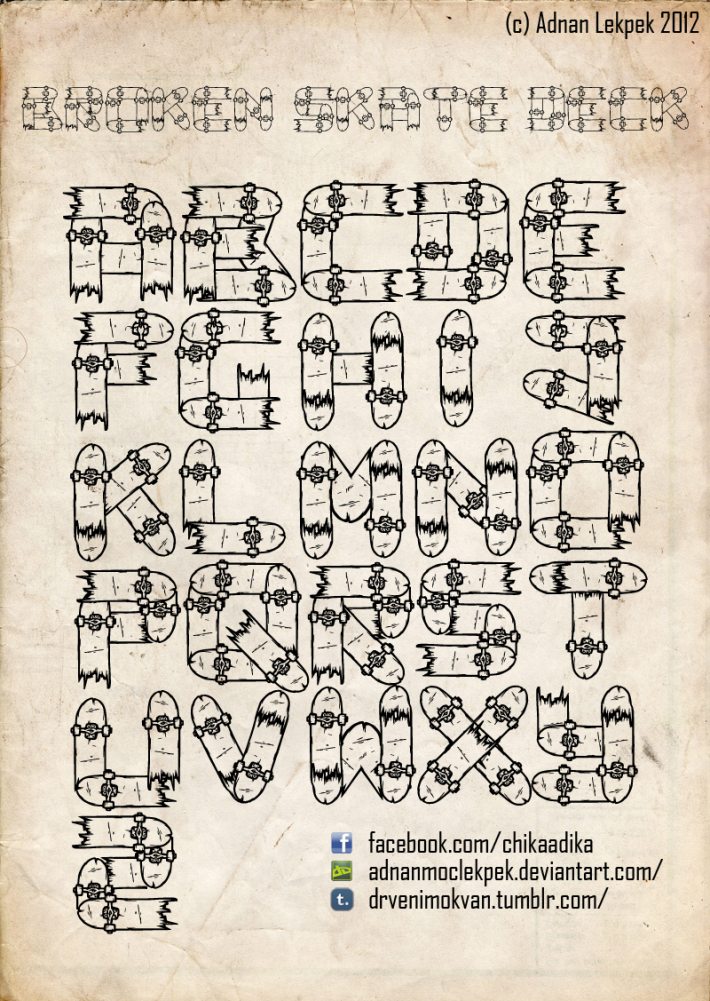 (c) Adnan Lekpek 2012
BROKEN SKATE DECK
A B C D E
F G H I J
K L M N O
P Q R S T
U V W X Y
Z
facebook.com/chikaadika
adnanmoclekpek.deviantart.com/
drvenimokvan.tumblr.com/